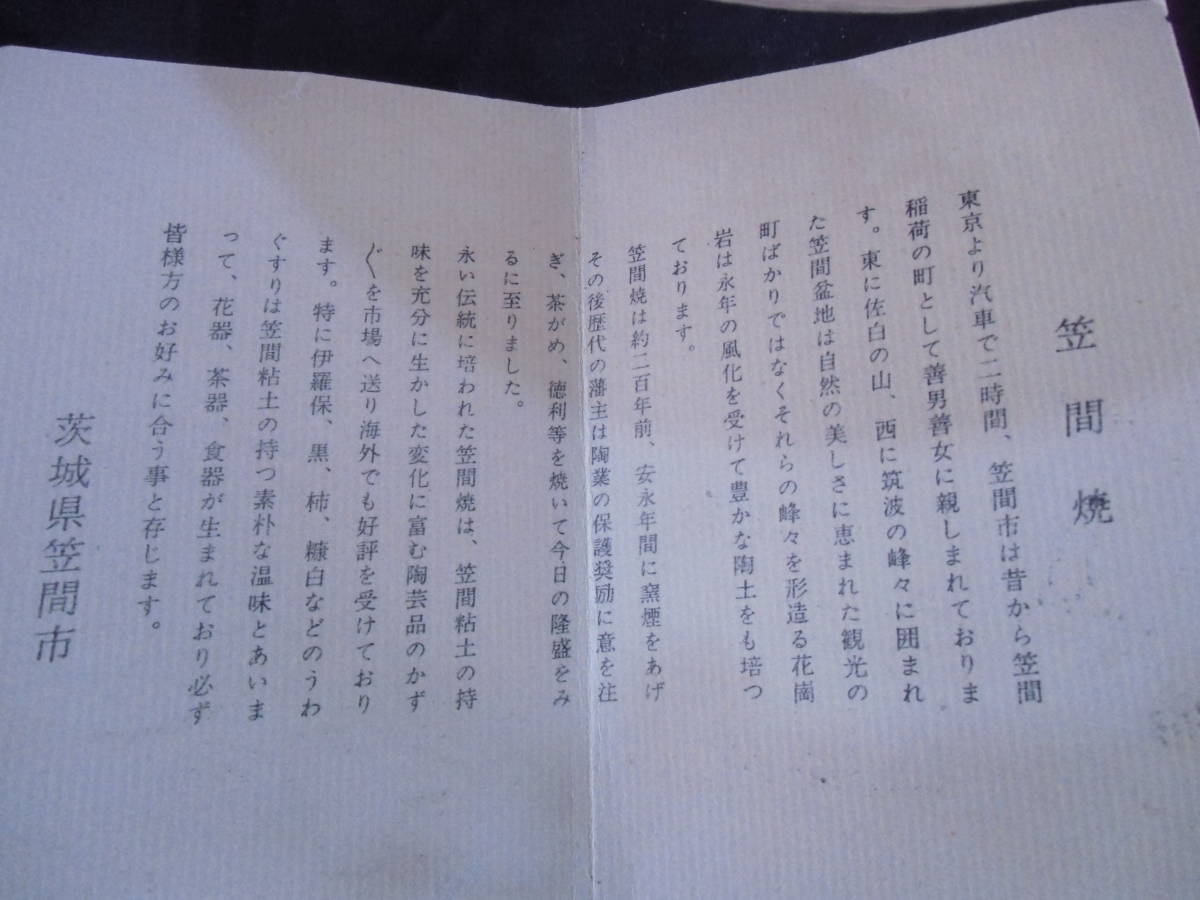 笠間焼
東京より汽車で二時間、笠間市は昔から笠間
稲荷の町として善男善女に親しまれておりま
す。東に佐白の山、西に筑波の峰々に囲まれ
た笠間盆地は自然の美しさに恵まれた観光の
町ばかりではなくそれらの峰々を形造る花崗
岩は永年の風化を受けて豊かな陶土をも培つ
ております。
笠間焼は約二百年前、安永年間に窯煙をあげ
その後歴代の藩主は陶業の保護奨励に意を注
ぎ、茶がめ、徳利等を焼いて今日の隆盛をみ
るに至りました。
永い伝統に培われた笠間焼は、笠間粘土の持
味を充分に生かした変化に富む陶芸品のかず
〲を市場へ送り海外でも好評を受けており
ます。特に伊羅保、黒、柿、糠白などのうわ
ぐすりは笠間粘土の持つ素朴な温味とあいま
って、花器、茶器、食器が生まれており必ず
皆様方のお好みに合う事と存じます。
茨城県笠間市